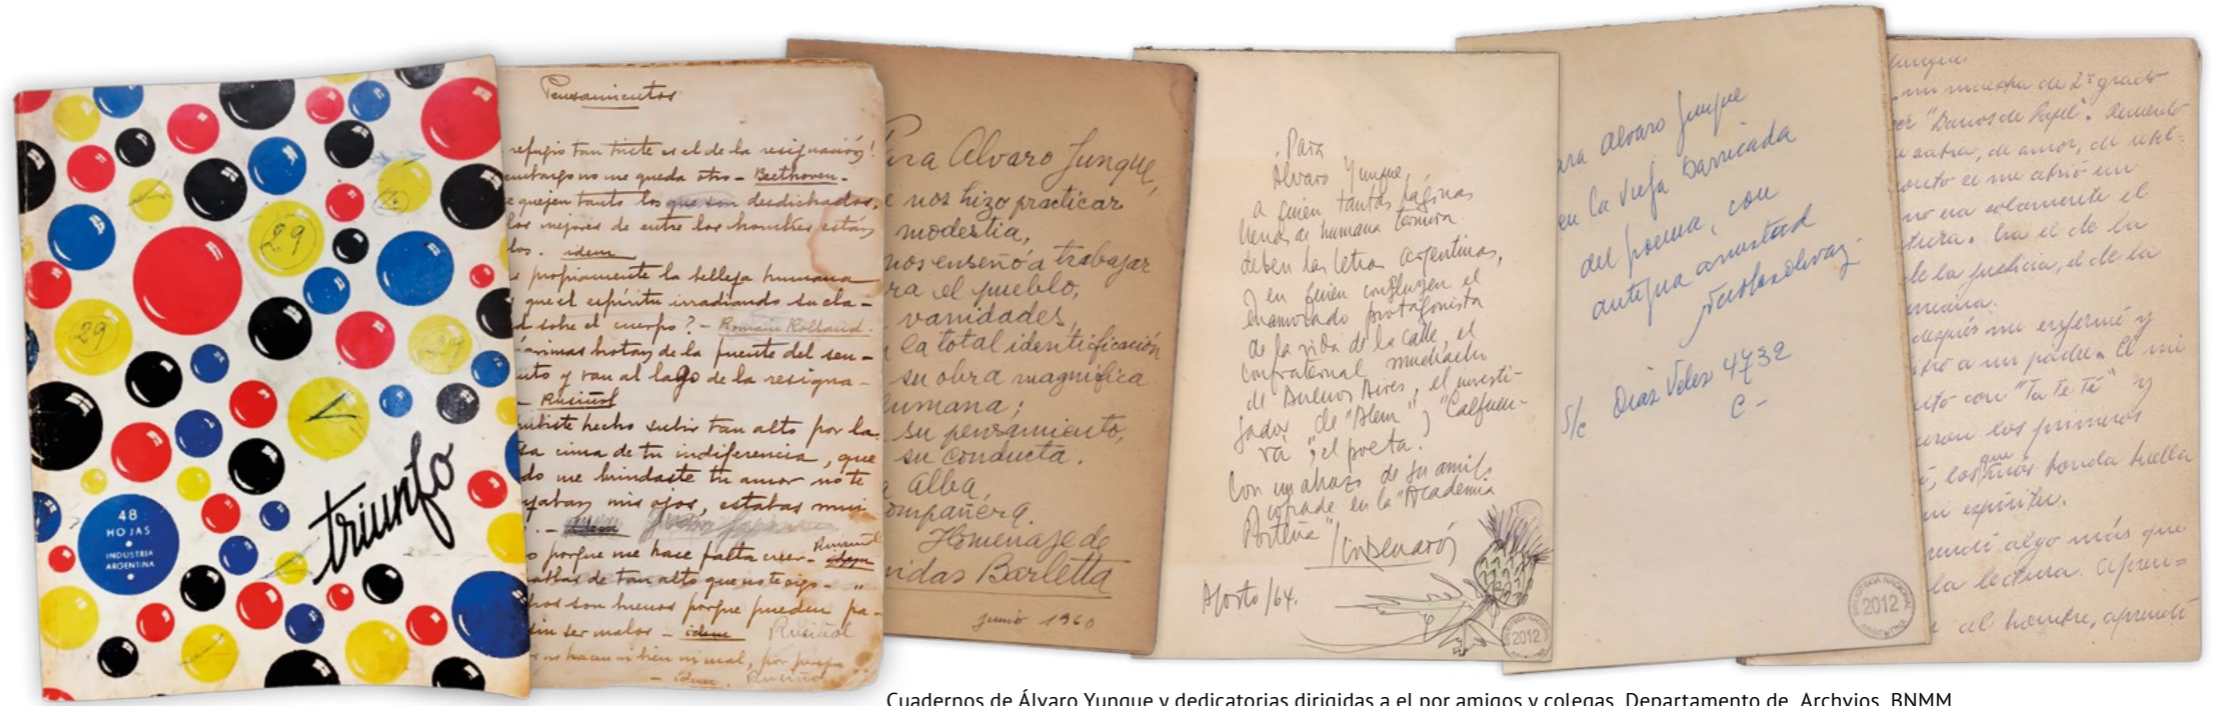 29
29
29
triunfo
48
HOJAS
INDUSTRIA
ARGENTINA
Pensamientos
refugio tan triste es el de la resignación!
embargo no me queda otro - Beethoven -
se quejen tanto los que son desdichados,
los mejores de entre los hombres están
los. idem
propiamente la belleza humana
que el espíritu irradiando su cla-
d sobre el cuerpo? - Romain Rolland.
ánimas brotan de la fuente del sen-
ito y van al lago de la resigna-
- Rusiñol
hubiste hecho subir tan alto por la
sa cima de tu indiferencia, que
do me brindaste tu amor no te
mis ojos, estabas muy
porque me hace falta creer - Rusiñol
hablas de tan alto que no te oigo - "
son buenos porque pueden pa-
sin ser malos - idem Rusiñol
no hacen ni bien ni mal, por
- idem. Rusiñol
Para Alvaro Yunque,
e nos hizo practicar
modestia,
nos enseñó a trabajar
ra el pueblo,
vanidades,
la total identificación
su obra magnífica
humana;
su pensamiento,
su conducta.
a Alba,
compañera.
Homenaje de
nidas Barletta
junio 1960
Para
Alvaro Yunque,
a quien tantas páginas
llenas de humana ternura
deben las letras argentinas,
y en quien confluyen el
enamorado protagonista
de la vida de la calle, el
confraternal muchacho
de Buenos Aires, el investi-
gador de "Alem" y "Calfucu-
rá", el poeta.
Con un abrazo de su amigo
cofrade en la "Academia
Porteña"
Agosto/64.
BIBLIOTECA NACIONAL
2012
ARGENTINA
ara Alvaro Yunque
en la vieja Barricada
del poema, con
antigua amistad
S/c Díaz Vélez 4732
C -
BIBLIOTECA NACIONAL
2012
ARGENTINA
Yunque.
mi maestra de 2º grado
"Barcos de Papel". Recuerdo
de amor, de
se me abrió un
no era solamente el
tura. Era el de la
de la justicia, el de la
humana.
después me enfermé y
a mi padre. El me
con "Ta te ti" y
los primeros
los que más honda huella
mi espíritu.
aprendí algo más que
la lectura. Apren-
al hombre, aprendí
Cuadernos de Álvaro Yunque y dedicatorias dirigidas a el por amigos y colegas. Departamento de Archvios, BNMM